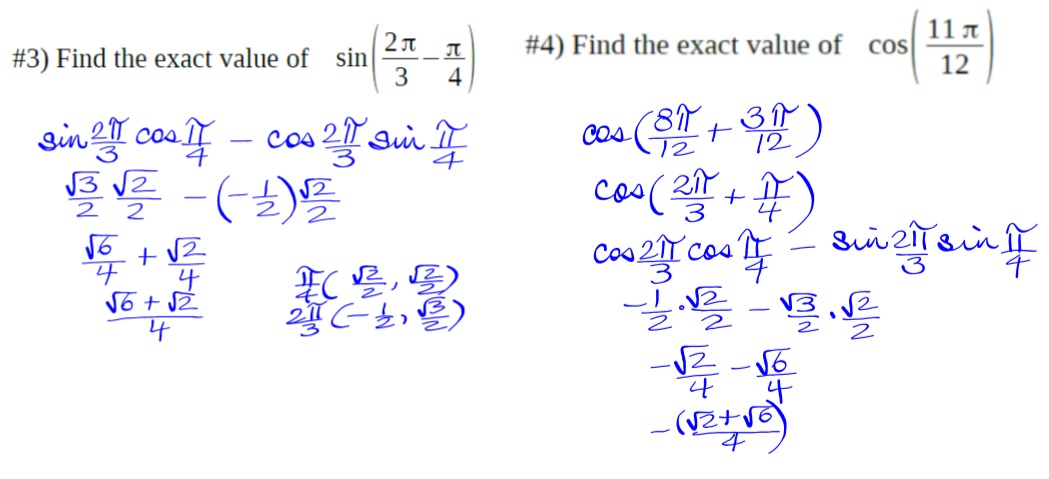 #3) Find the exact value of sin(2π/3 − π/4)
sin 2π/3 cos π/4 − cos 2π/3 sin π/4
√3/2 √2/2 − (−1/2) √2/2
√6/4 + √2/4
(√6 + √2)/4
π/4 (√2/2, √2/2)
2π/3 (−1/2, √3/2)
#4) Find the exact value of cos(11π/12)
cos(8π/12 + 3π/12)
cos(2π/3 + π/4)
cos 2π/3 cos π/4 − sin 2π/3 sin π/4
−1/2 · √2/2 − √3/2 · √2/2
−√2/4 − √6/4
−(√2+√6)/4